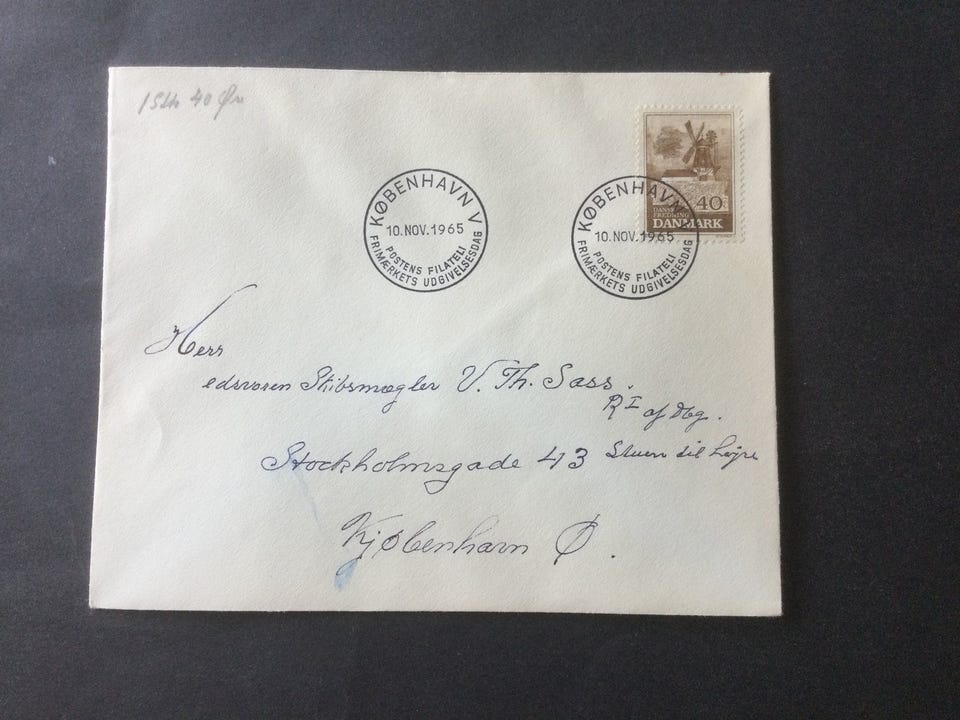 1 Stk 40 Øre
KØBENHAVN V
10.NOV.1965
POSTENS FILATELI
FRIMÆRKETS UDGIVELSESDAG
KØBENHAVN V
10.NOV.1965
POSTENS FILATELI
FRIMÆRKETS UDGIVELSESDAG
40
DANSK
FREDNING
DANMARK
Herr
edsvoren Skibsmægler V. Th. Sass.
R I af Dbg.
Stockholmsgade 43 Stuen til højre
Kjøbenhavn Ø.